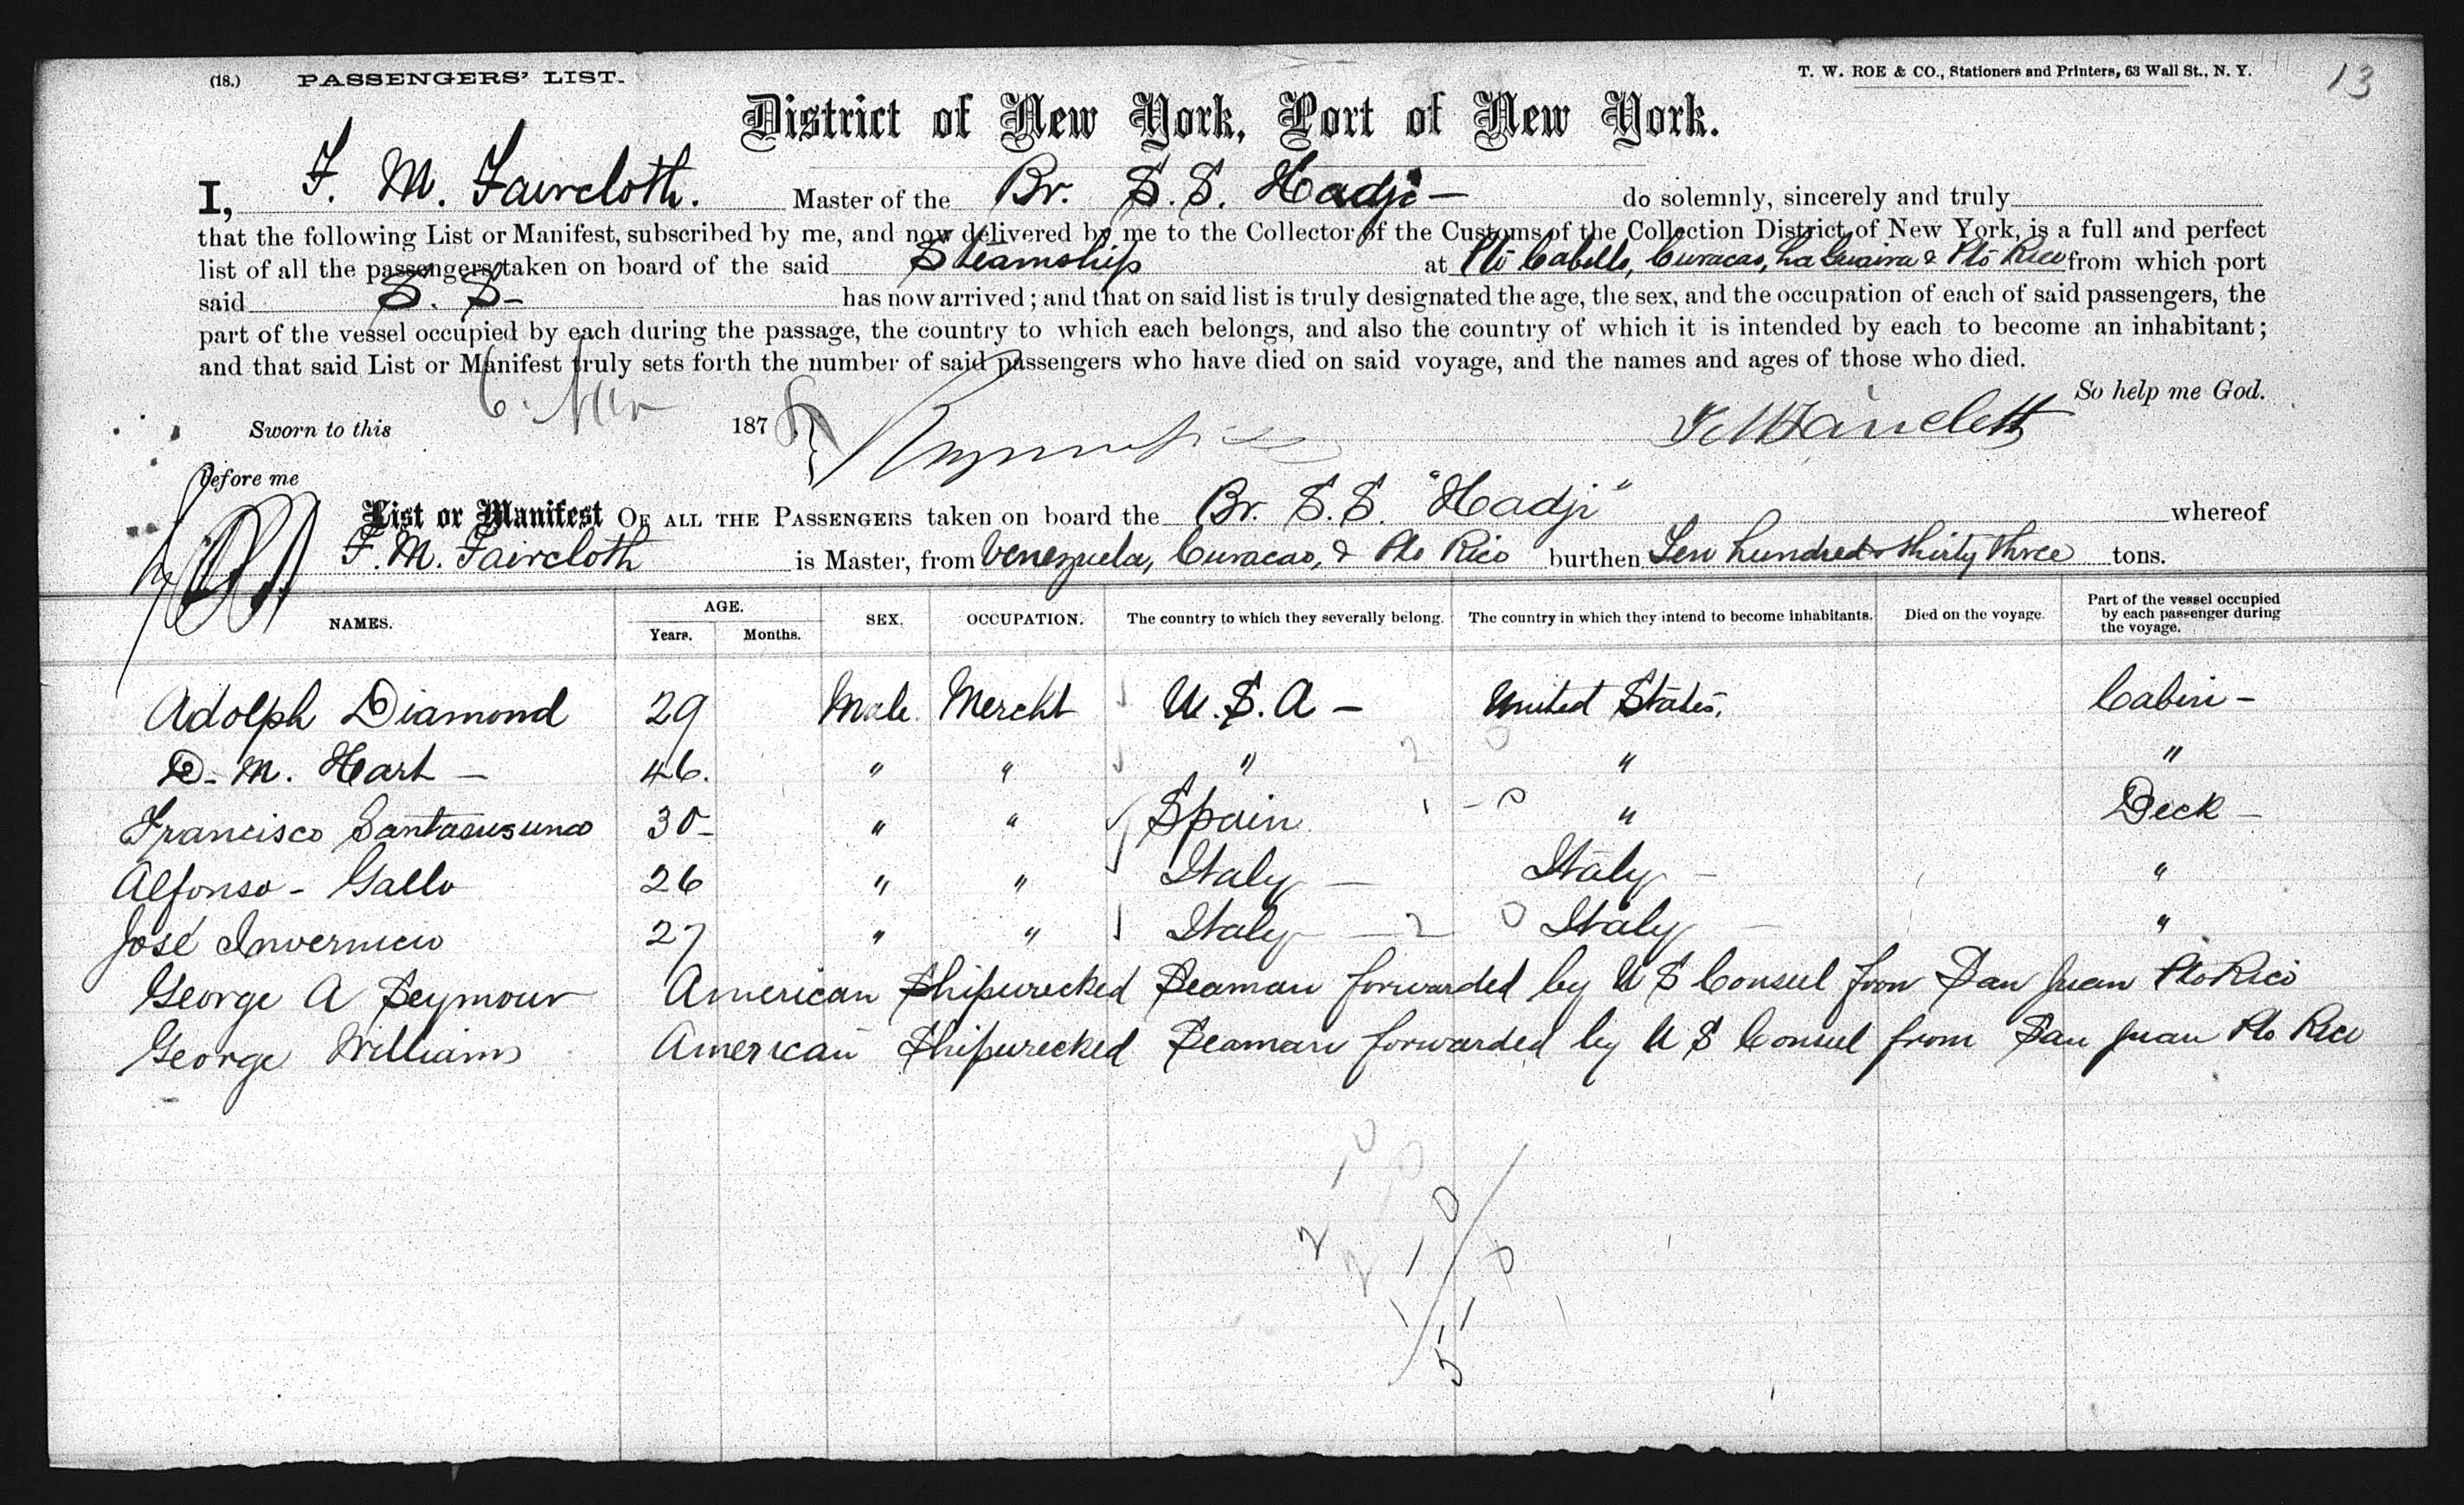 (18.) PASSENGERS' LIST. T. W. ROE & CO., Stationers and Printers, 63 Wall St., N. Y. 13
District of New York, Port of New York.
I, F. M. Faircloth. Master of the Br. S.S. Hadji — do solemnly, sincerely and truly
that the following List or Manifest, subscribed by me, and now delivered by me to the Collector of the Customs of the Collection District of New York, is a full and perfect
list of all the passengers taken on board of the said Steamship at Pto Cabello, Curacao, La Guaira & Pto Rico from which port
said S. S— has now arrived; and that on said list is truly designated the age, the sex, and the occupation of each of said passengers, the
part of the vessel occupied by each during the passage, the country to which each belongs, and also the country of which it is intended by each to become an inhabitant;
and that said List or Manifest truly sets forth the number of said passengers who have died on said voyage, and the names and ages of those who died.
So help me God.
Sworn to this 6. Nov 1878 F M Faircloth
before me
List or Manifest OF ALL THE PASSENGERS taken on board the Br. S.S. "Hadji" whereof
F. M. Faircloth is Master, from Venezuela, Curacao, & Pto Rico burthen Ten hundred & thirty three tons.
NAMES. AGE. Years. Months. SEX. OCCUPATION. The country to which they severally belong. The country in which they intend to become inhabitants. Died on the voyage. Part of the vessel occupied by each passenger during the voyage.
Adolph Diamond 29 Male Mercht U.S.A — United States, Cabin —
D. M. Hart — 46. " " " 2 0 " "
Francisco Santasusuna 30— " " Spain 1 - 0 " Deck —
Alfonso - Gallo 26 " " Italy — Italy — "
José Invernicio 27 " " Italy — 2 0 Italy — "
George A Seymour American Shipwrecked Seaman forwarded by U S Consul from San Juan Pto Rico
George Williams American Shipwrecked Seaman forwarded by U S Consul from San Juan Pto Rico
0
0
2 1 0
5